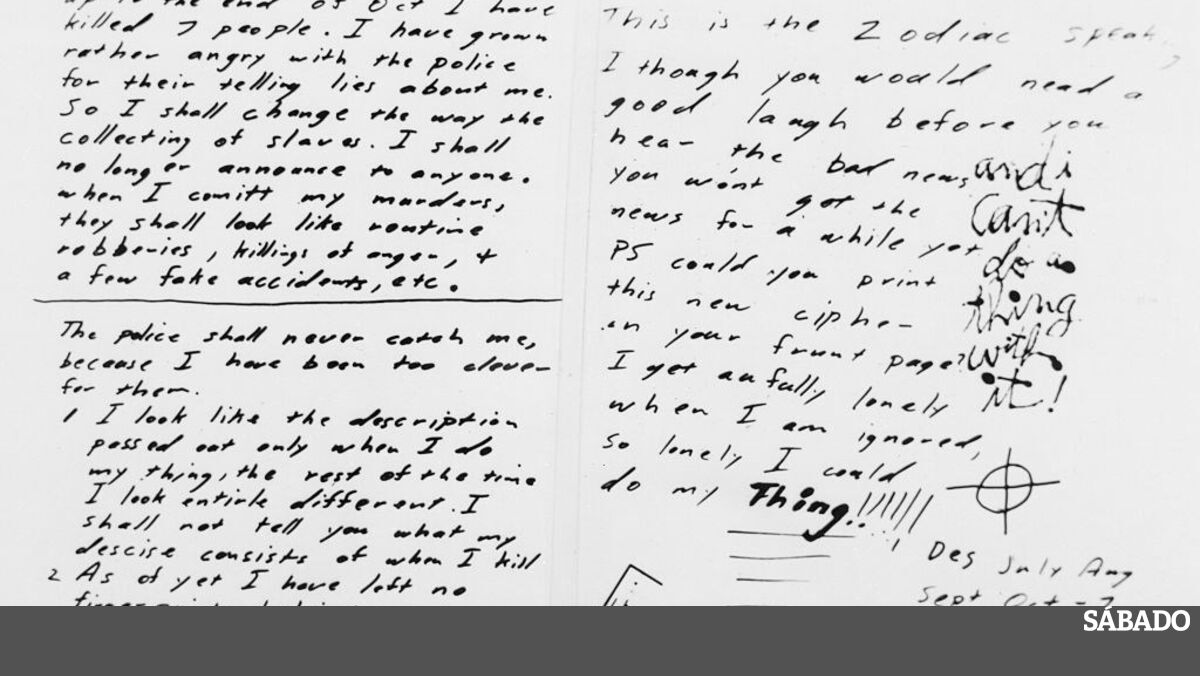 up to the end of Oct I have
killed 7 people. I have grown
rather angry with the police
for their telling lies about me.
So I shall change the way the
collecting of slaves. I shall
no longer announce to anyone.
when I comitt my murders,
they shall look like routine
robberies, killings of anger, +
a few fake accidents, etc.
The police shall never catch me,
because I have been too clever
for them.
1 I look like the description
passed out only when I do
my thing, the rest of the time
I look entirle different. I
shall not tell you what my
descise consists of when I kill
2 As of yet I have left no
This is the Zodiac speaking
I though you would nead a
good laugh before you
hear the bad news
you won't get the
news for a while yet
PS could you print
this new cipher
in your frunt page?
I get aufully lonely
when I am ignored,
so lonely I could
do my Thing!!!!!!
and i
can't
do a
thing
with
it!
Des July Aug
Sept Oct = 7
SÁBADO